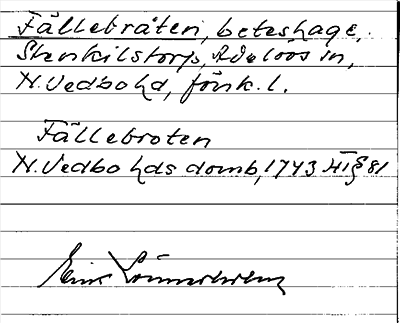 Fällebråten, beteshage,
Stenkilstorp, Adelövs sn,
N. Vedbo hd, Jönk. l.
Fällebroten
N. Vedbo hds domb, 1743 HI § 81